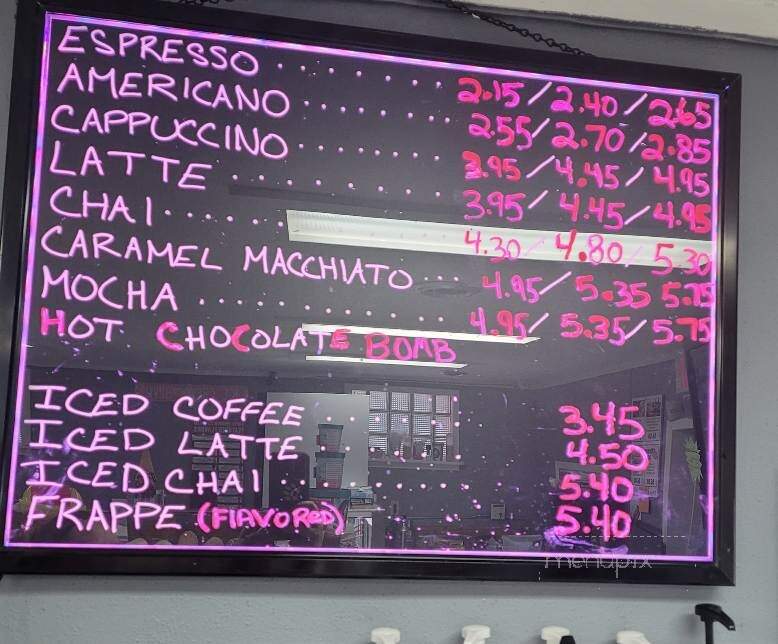 ESPRESSO . . . . . . . . 2.15/2.40/2.65
AMERICANO . . . . . . . . 2.55/2.70/2.85
CAPPUCCINO . . . . . . . . 3.95/4.45/4.95
LATTE . . . . . . . . 3.95/4.45/4.95
CHAI . . . . . . . . 4.30/4.80/5.30
CARAMEL MACCHIATO . . . 4.95/5.35 5.75
MOCHA . . . . . . . . 4.95/5.35/5.75
HOT CHOCOLATE BOMB
ICED COFFEE . . . . . . 3.45
ICED LATTE . . . . . . 4.50
ICED CHAI . . . . . . 5.40
FRAPPE (FlAVORED) . . . . 5.40
menupix